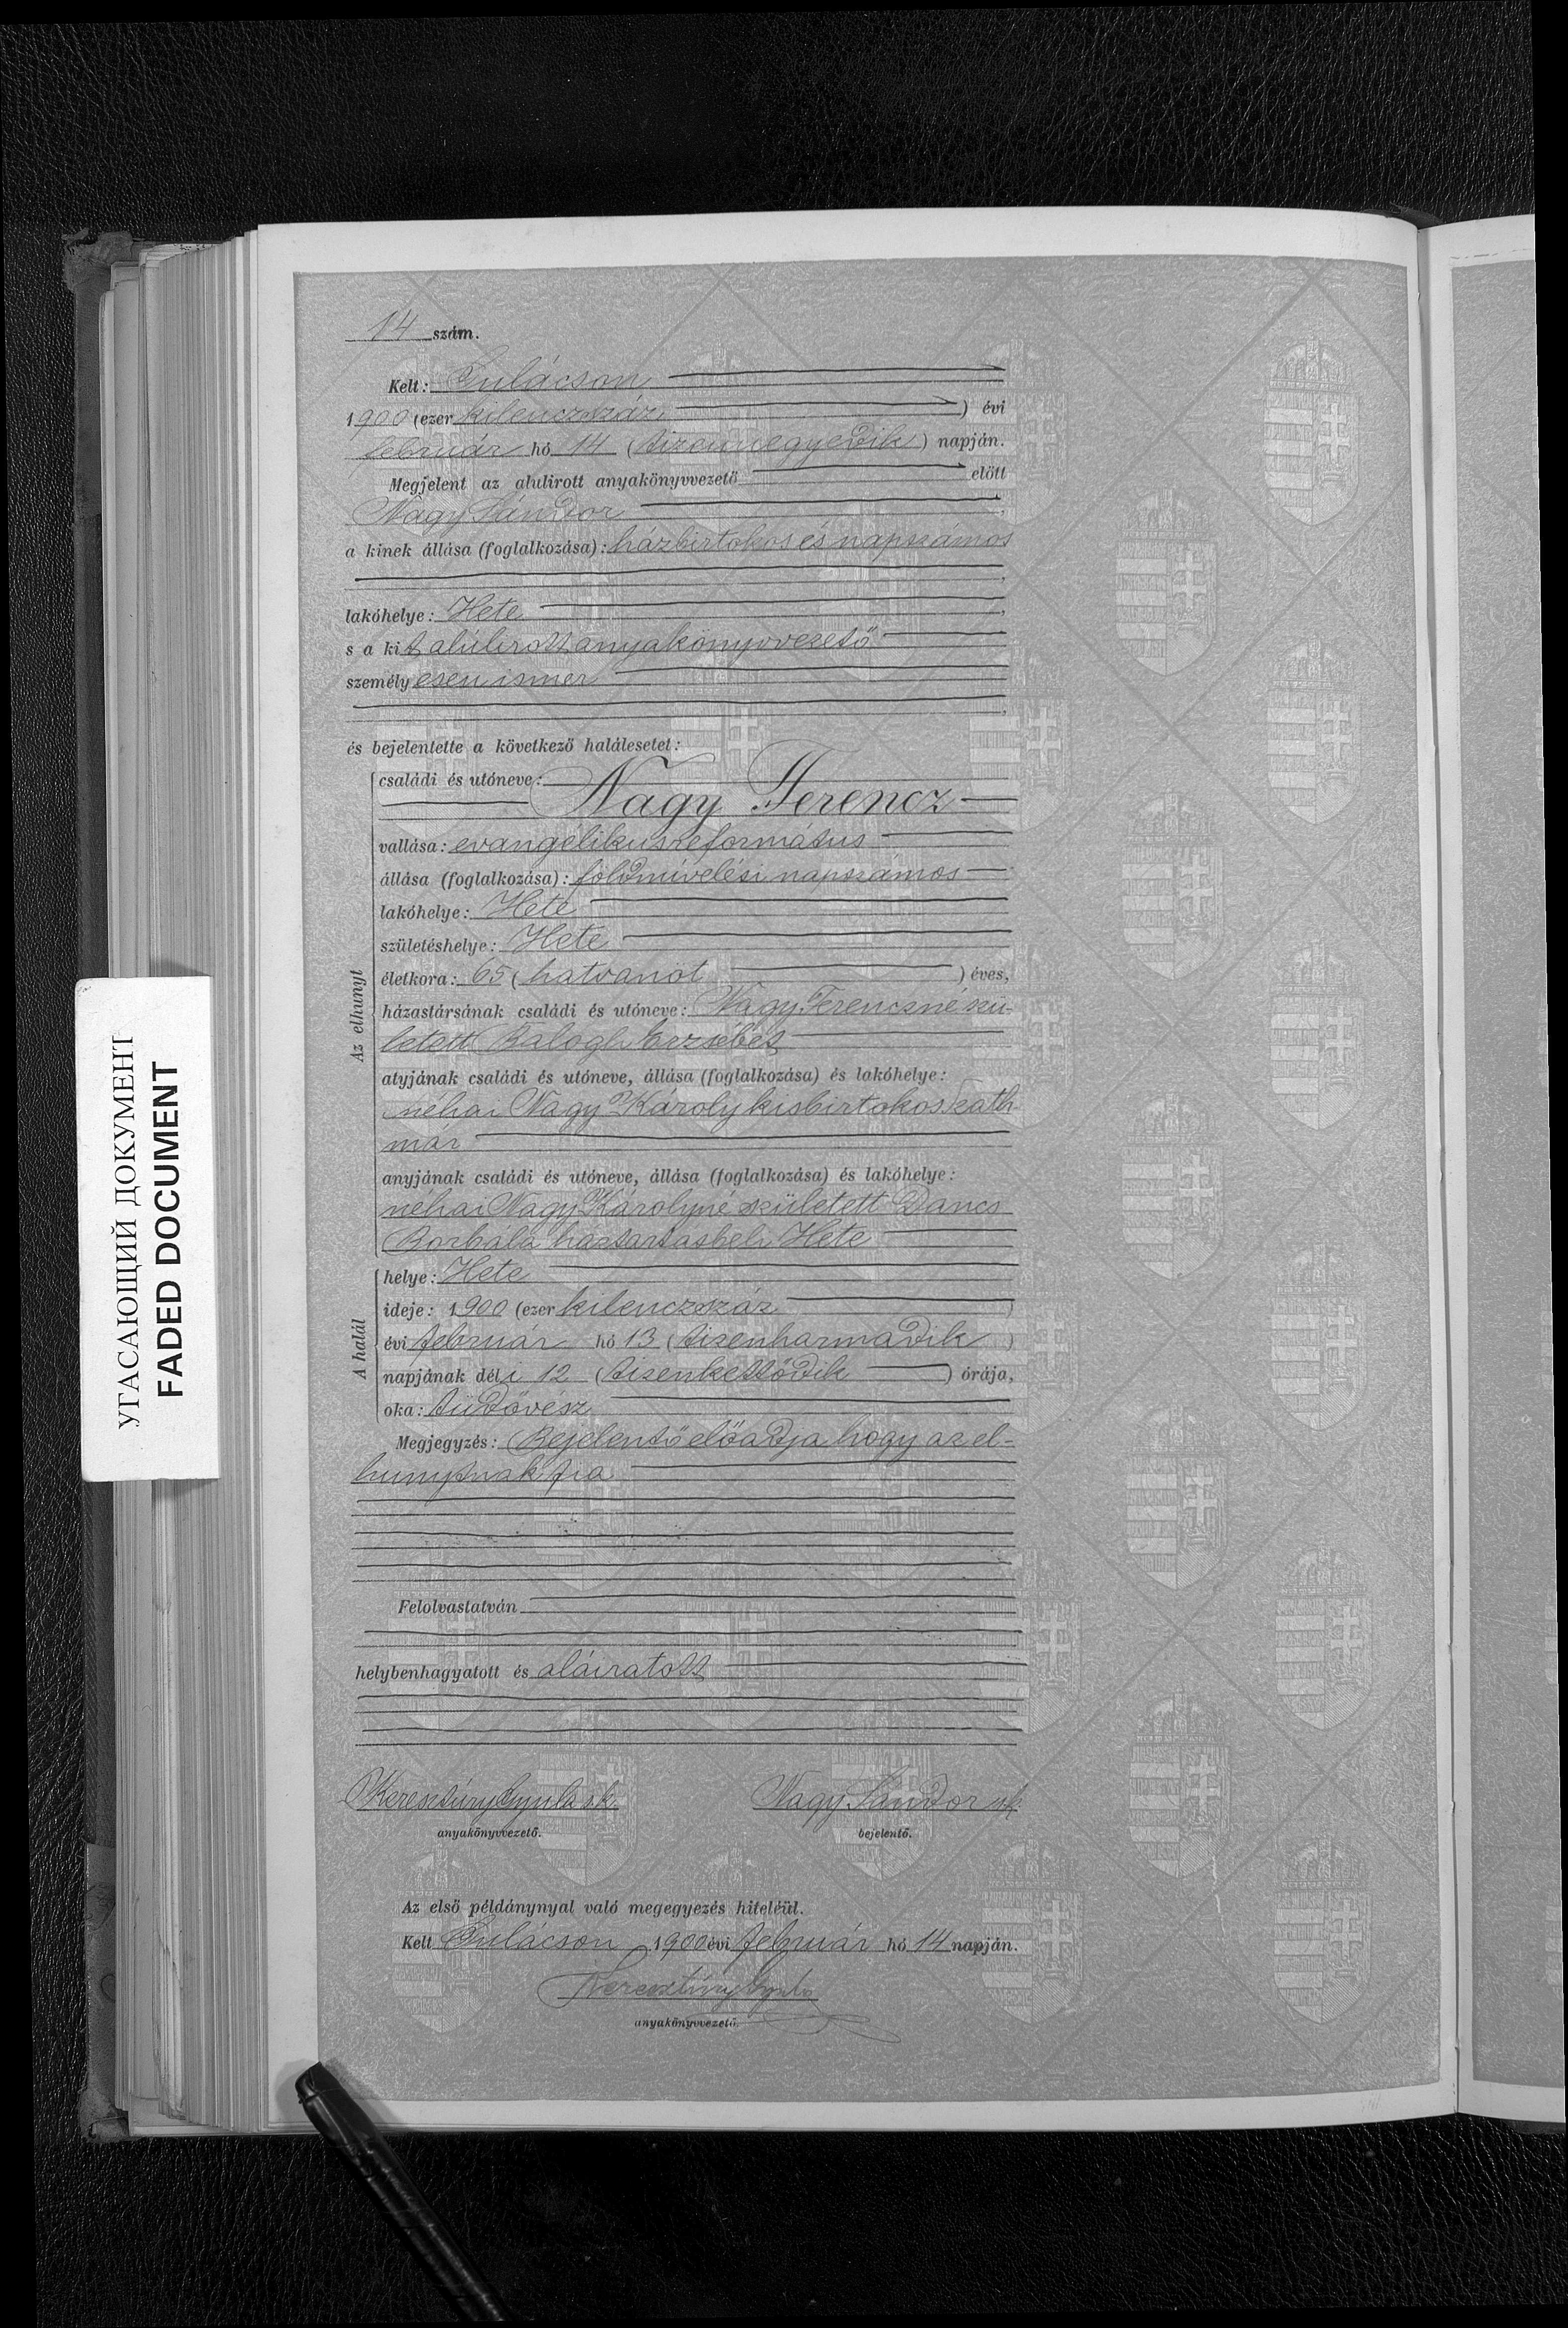 14 szám.
Kelt: Gulácson
1900 (ezer kilenczszáz) évi
február hó 14 (tizennegyedik) napján.
Megjelent az alulirott anyakönyvvezető előtt
Nagy Sándor,
a kinek állása (foglalkozása): házbirtokos és napszámos
,
lakóhelye: Hete,
s a kit alúlirott anyakönyvvezető
személyesen ismer
,
és bejelentette a következő halálesetet:
Az elhunyt
családi és utóneve:
Nagy Ferencz
vallása: evangélikus református
állása (foglalkozása): földmívelési napszámos
lakóhelye: Hete
születéshelye: Hete
életkora: 65 (hatvanöt) éves,
házastársának családi és utóneve: Nagy Ferenczné szü-
letett Balogh Erzsébet
atyjának családi és utóneve, állása (foglalkozása) és lakóhelye:
néhai Nagy Károly kisbirtokos Szath
már
anyjának családi és utóneve, állása (foglalkozása) és lakóhelye:
néhai Nagy Károlyné született Dancs
Borbála háztartásbeli Hete
A halál
helye: Hete
ideje: 1900 (ezer kilenczszáz)
évi február hó 13 (tizenharmadik)
napjának déli 12 (tizenkettődik) órája,
oka: tüdővész
Megjegyzés: Bejelentő előadja hogy az el-
hunytnak fia
Felolvastatván
helybenhagyatott és aláiratott
Keresztúry Gyula s.k. Nagy Sándor sk
anyakönyvvezető. bejelentő.
Az első példánynyal való megegyezés hiteléül.
Kelt Gulácson 1900 évi február hó 14 napján.
Keresztúry Gyula
anyakönyvvezető.
УГАСАЮЩИЙ ДОКУМЕНТ
FADED DOCUMENT